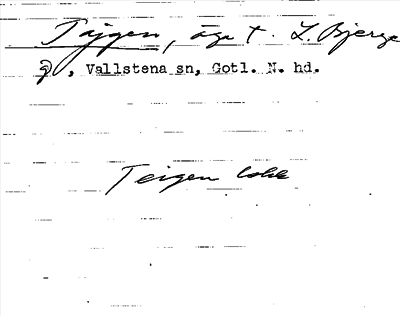 Tajgen, äga t. L. Bjerge
g, Vallstena sn, Gotl. N. hd.
Teigen